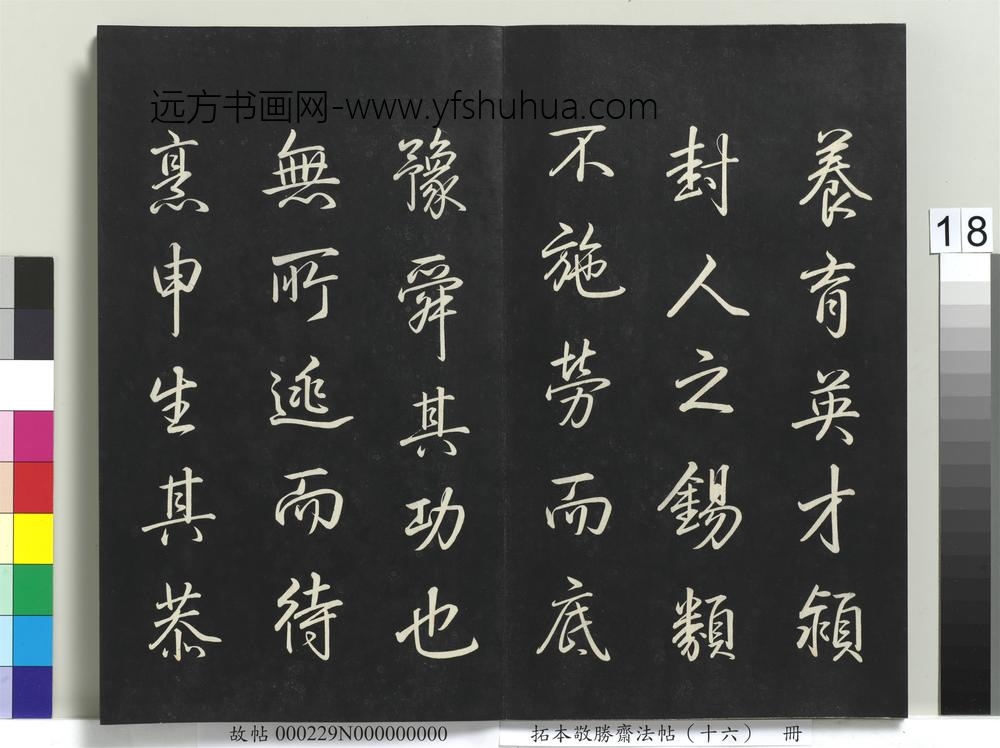 远方书画网-www.yfshuhua.com
養育英才潁
封人之錫類
不施勞而底
豫舜其功也
無所逃而待
烹申生其恭
18
故帖 000229N000000000
拓本敬勝齋法帖（十六） 冊